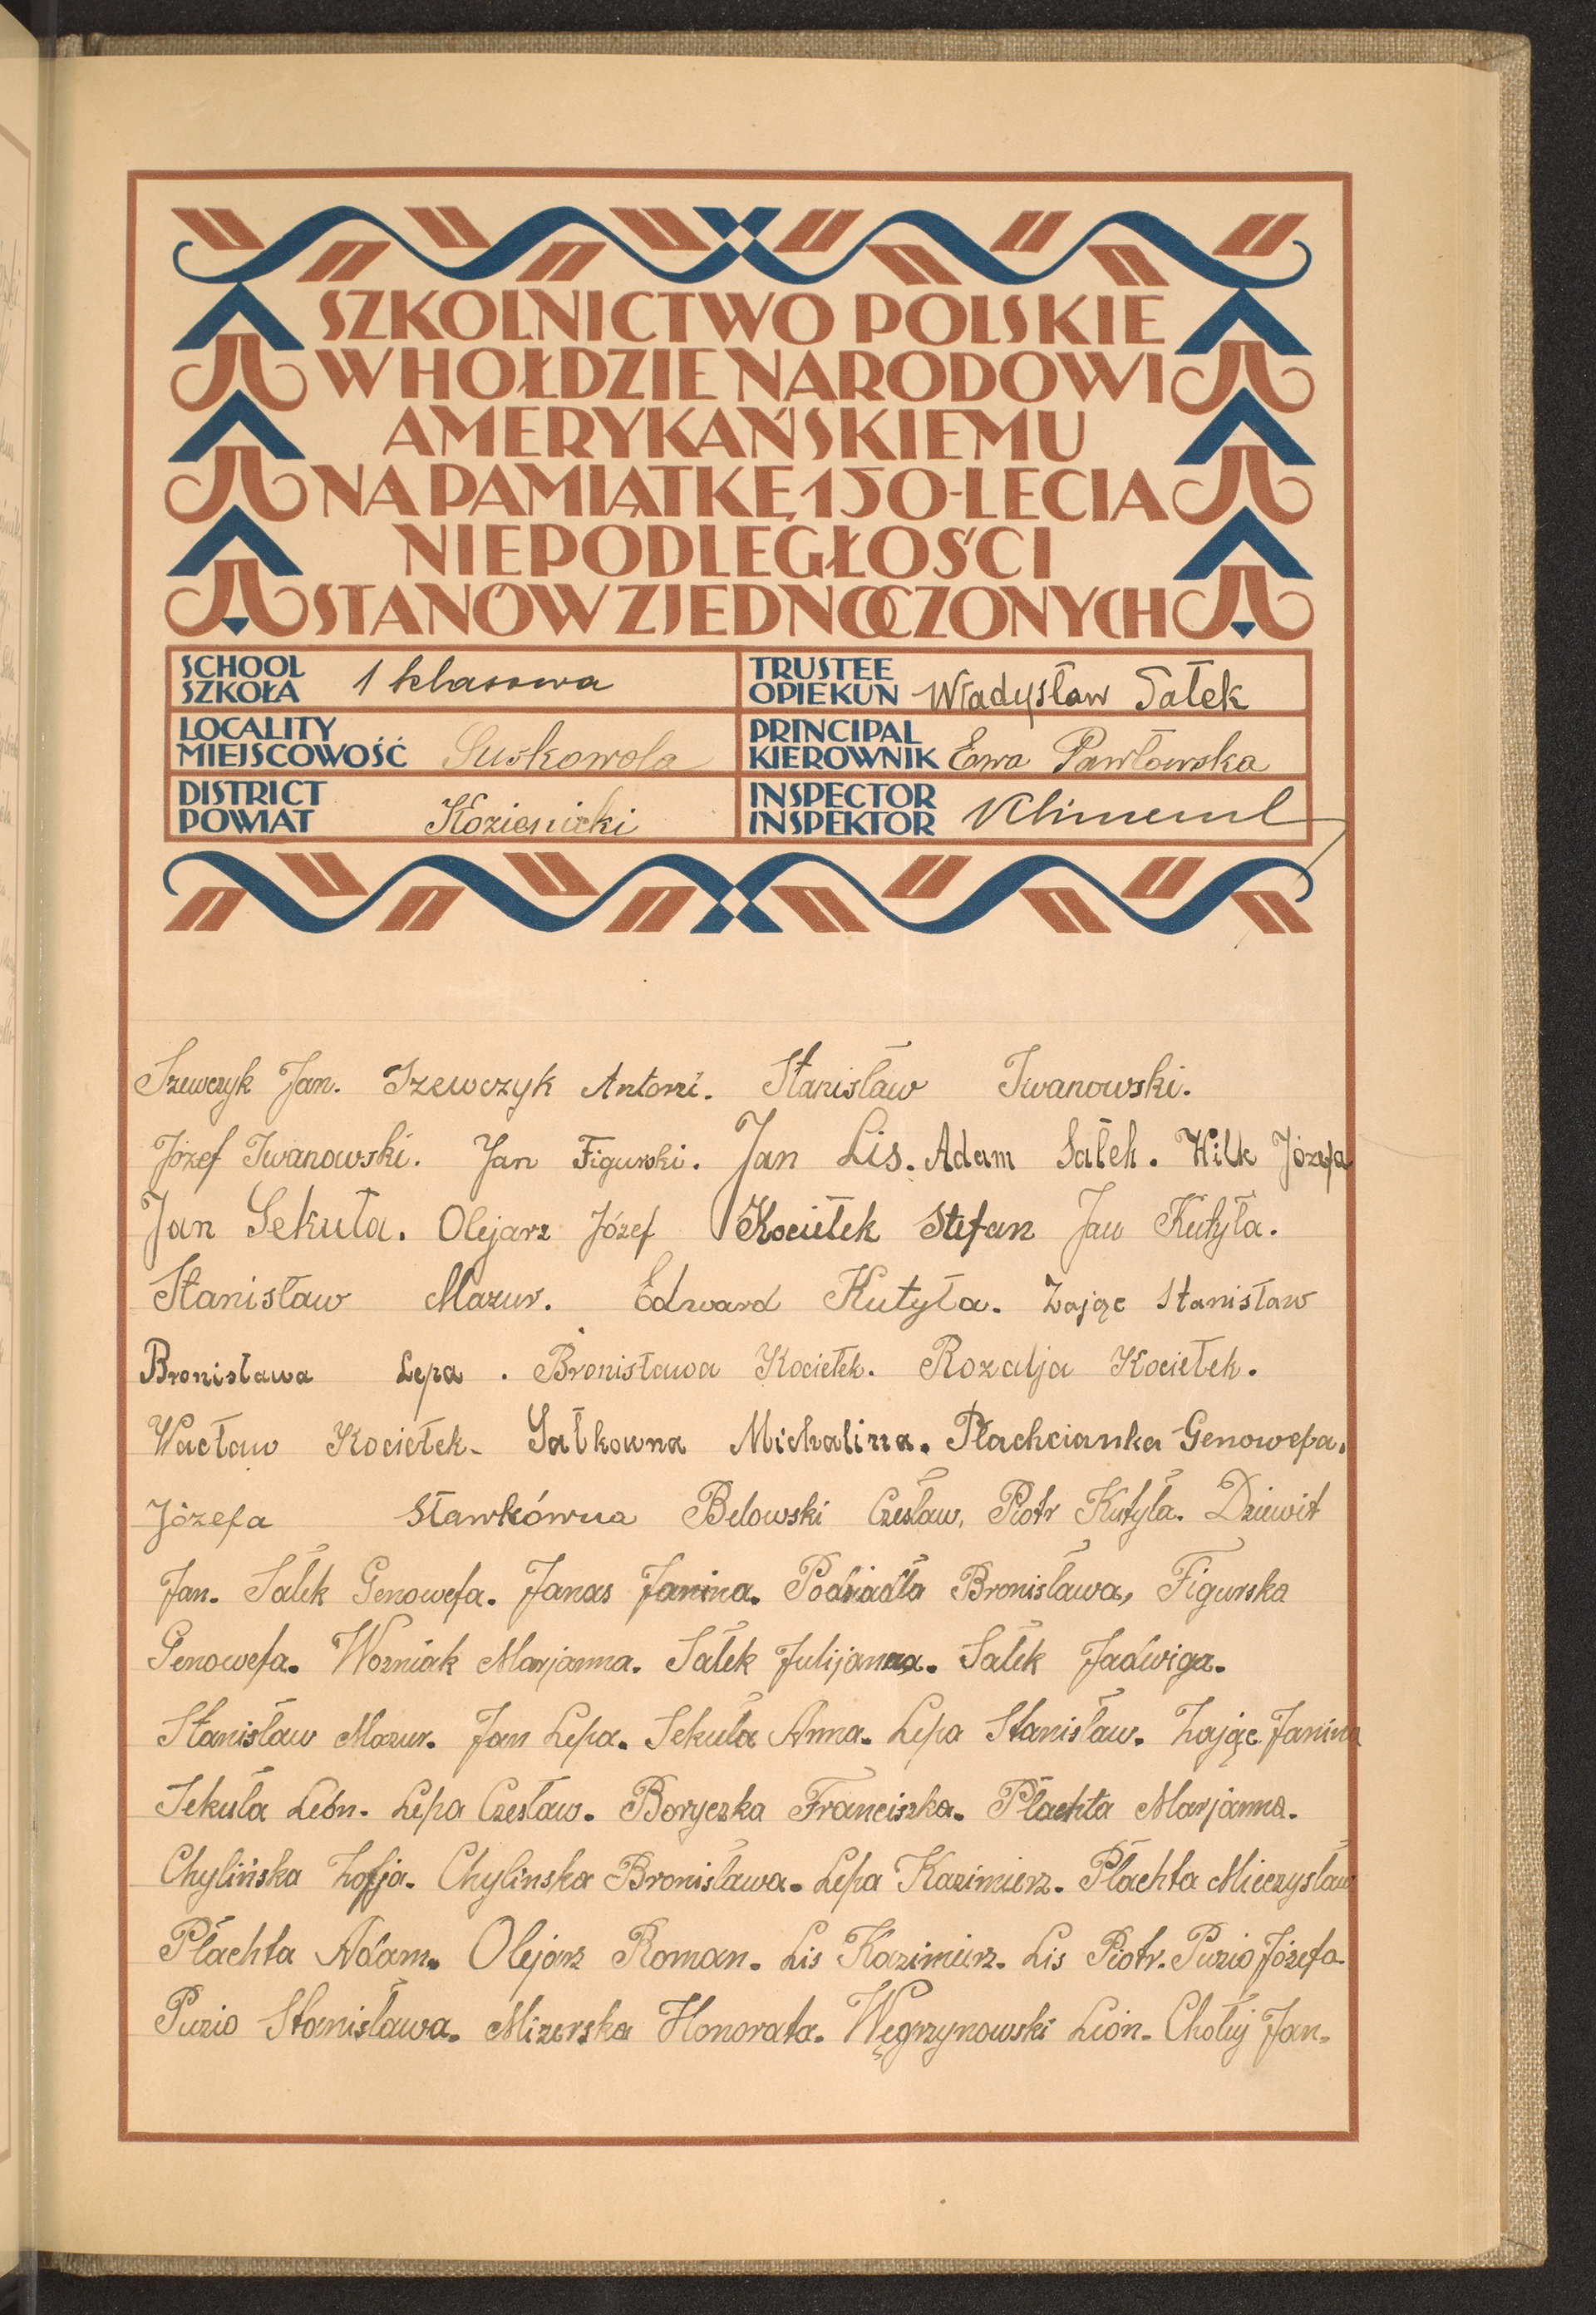 SZKOLNICTWO POLSKIE
W HOŁDZIE NARODOWI
AMERYKAŃSKIEMU
NA PAMIĄTKĘ 150-LECIA
NIEPODLEGŁOŚCI
STANÓW ZJEDNOCZONYCH
SCHOOL
SZKOŁA 1 klasowa
TRUSTEE
OPIEKUN Władysław Sałek
LOCALITY
MIEJSCOWOŚĆ Suskowola
PRINCIPAL
KIEROWNIK Ewa Pawłowska
DISTRICT
POWIAT Kozienicki
INSPECTOR
INSPEKTOR
Szewczyk Jan. Szewczyk Antoni. Stanisław Iwanowski.
Józef Iwanowski. Jan Figurski. Jan Lis. Adam Sałek. Wilk Józefa
Jan Sekuła. Olejarz Józef Kociełek Stefan Jan Kutyła.
Stanisław Mazur. Edward Kutyła. Zając Stanisław
Bronisława Lepa. Bronisława Kociełek. Rozalja Kociełek.
Wacław Kociełek. Sałkowna Michalina. Płachcianka Genowefa.
Józefa Sławkówna Belowski Czesław, Piotr Kutyła. Dziewit
Jan. Sałek Genowefa. Janas Janina. Podsiadła Bronisława, Figurska
Genowefa. Wozniak Marjanna. Sałek Julijanna. Sałek Jadwiga.
Stanisław Mazur. Jan Lepa. Sekuła Anna. Lepa Stanisław. Zając Janina
Sekuła Leon. Lepa Czesław. Boryczka Franciszka. Płachta Marjanna.
Chylińska Zofja. Chylinska Bronisława. Lepa Kazimierz. Płachta Mieczysław
Płachta Adam. Olejarz Roman. Lis Kazimierz. Lis Piotr. Puzio Józefa.
Puzio Stanisława. Mizerska Honorata. Węgrzynowski Leon. Chołuj Jan.